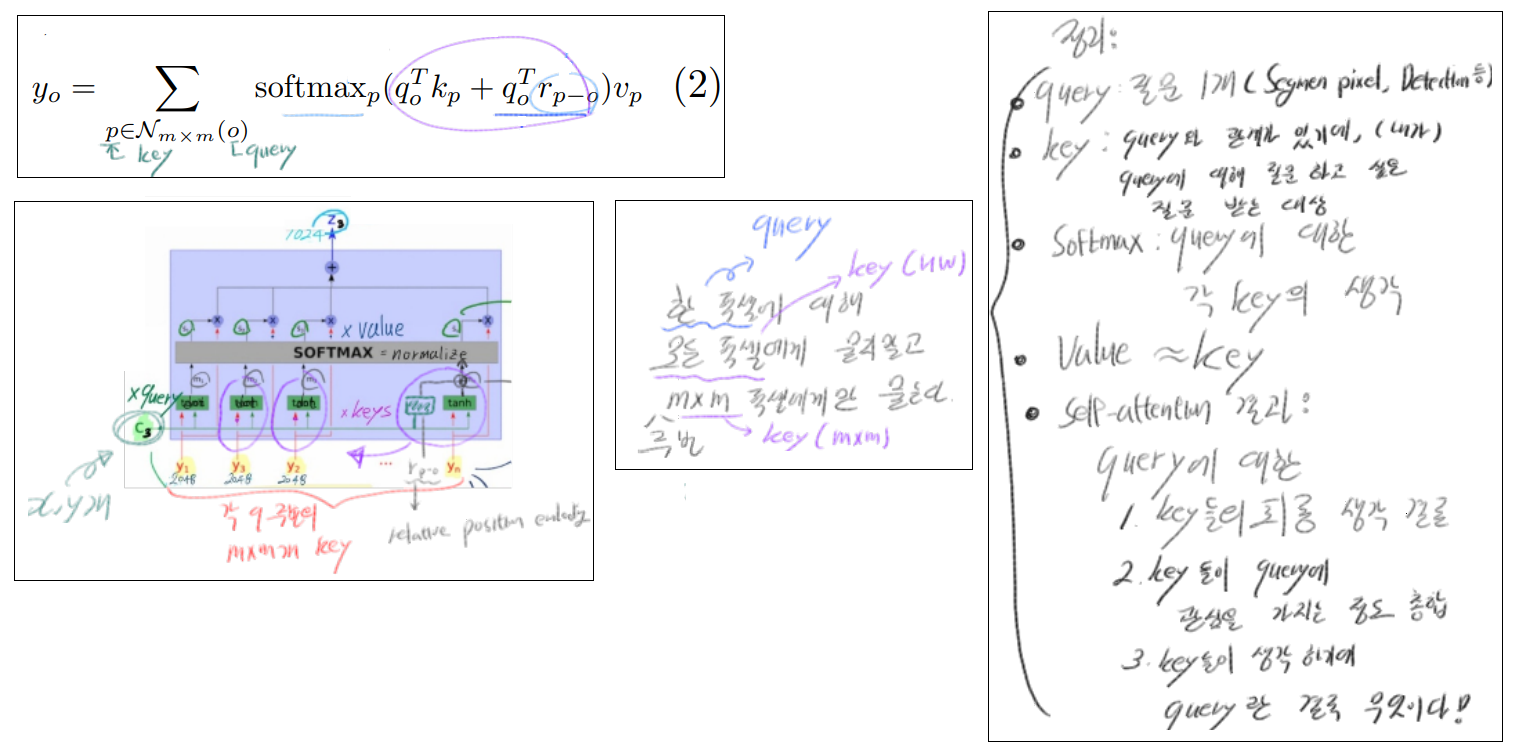 y_o = ∑ softmax_p(q_o^T k_p + q_o^T r_{p−o})v_p (2)
p∈N_{m×m}(o)
key
query
Z3
1024
x value
SOFTMAX = normalize
x query
x keys
tanh
C3
y1 y3 y2 ... r_{p-o} yn
2048 2048 2048
x,y개
각 q 주변의
m×m개 key
relative position embedding
query
key (HW)
한 픽셀에 대해
모든 픽셀에게 물어보고
m×m 픽셀에게만 묻는다.
주변
key (m×m)
정리:
query : 질문 1개 (Segmen pixel, Detection 등)
key : query와 관계가 있기에, (내가)
query에 대해 질문 하고 싶은
질문 받는 대상
Softmax : query에 대한
각 key의 생각
Value ≈ key
Self-attention 결과 :
query에 대한
1. key들의 최종 생각 결론
2. key들이 query에
관심을 가지는 정도 총합
3. key들이 생각하기에
query란 결국 무엇이다!